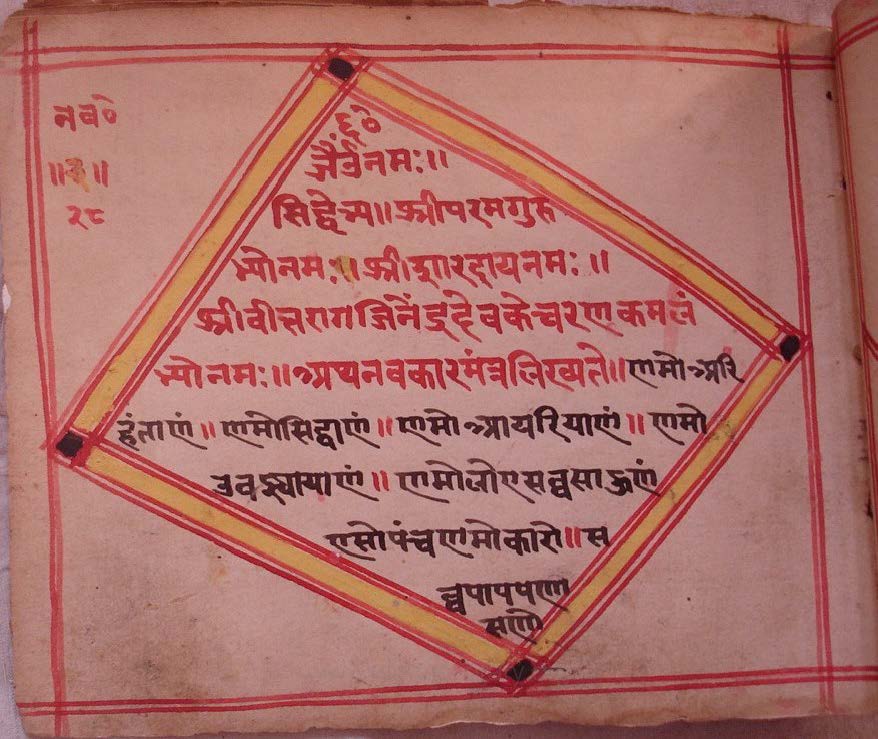 नव०
॥क॥
२८
६०
जैर्वनमः॥
सिद्वेभ्य॥ श्रीपरमगुरु
भ्योनमः॥ श्रीशारदायनमः॥
श्रीवीतरागजिनेंद्रदेवकेचरणकमलं
भ्योनमः॥ अथनवकारमंत्रलिख्यते॥ णमोअरि
हंताणं॥ णमोसिद्धाणं॥ णमोआयरियाणं॥ णमो
उवझ्यायाणं॥ णमोलोएसव्वसाहूणं
एसोपंच्चणमोकारो॥ स
व्वपापपणा
सणो